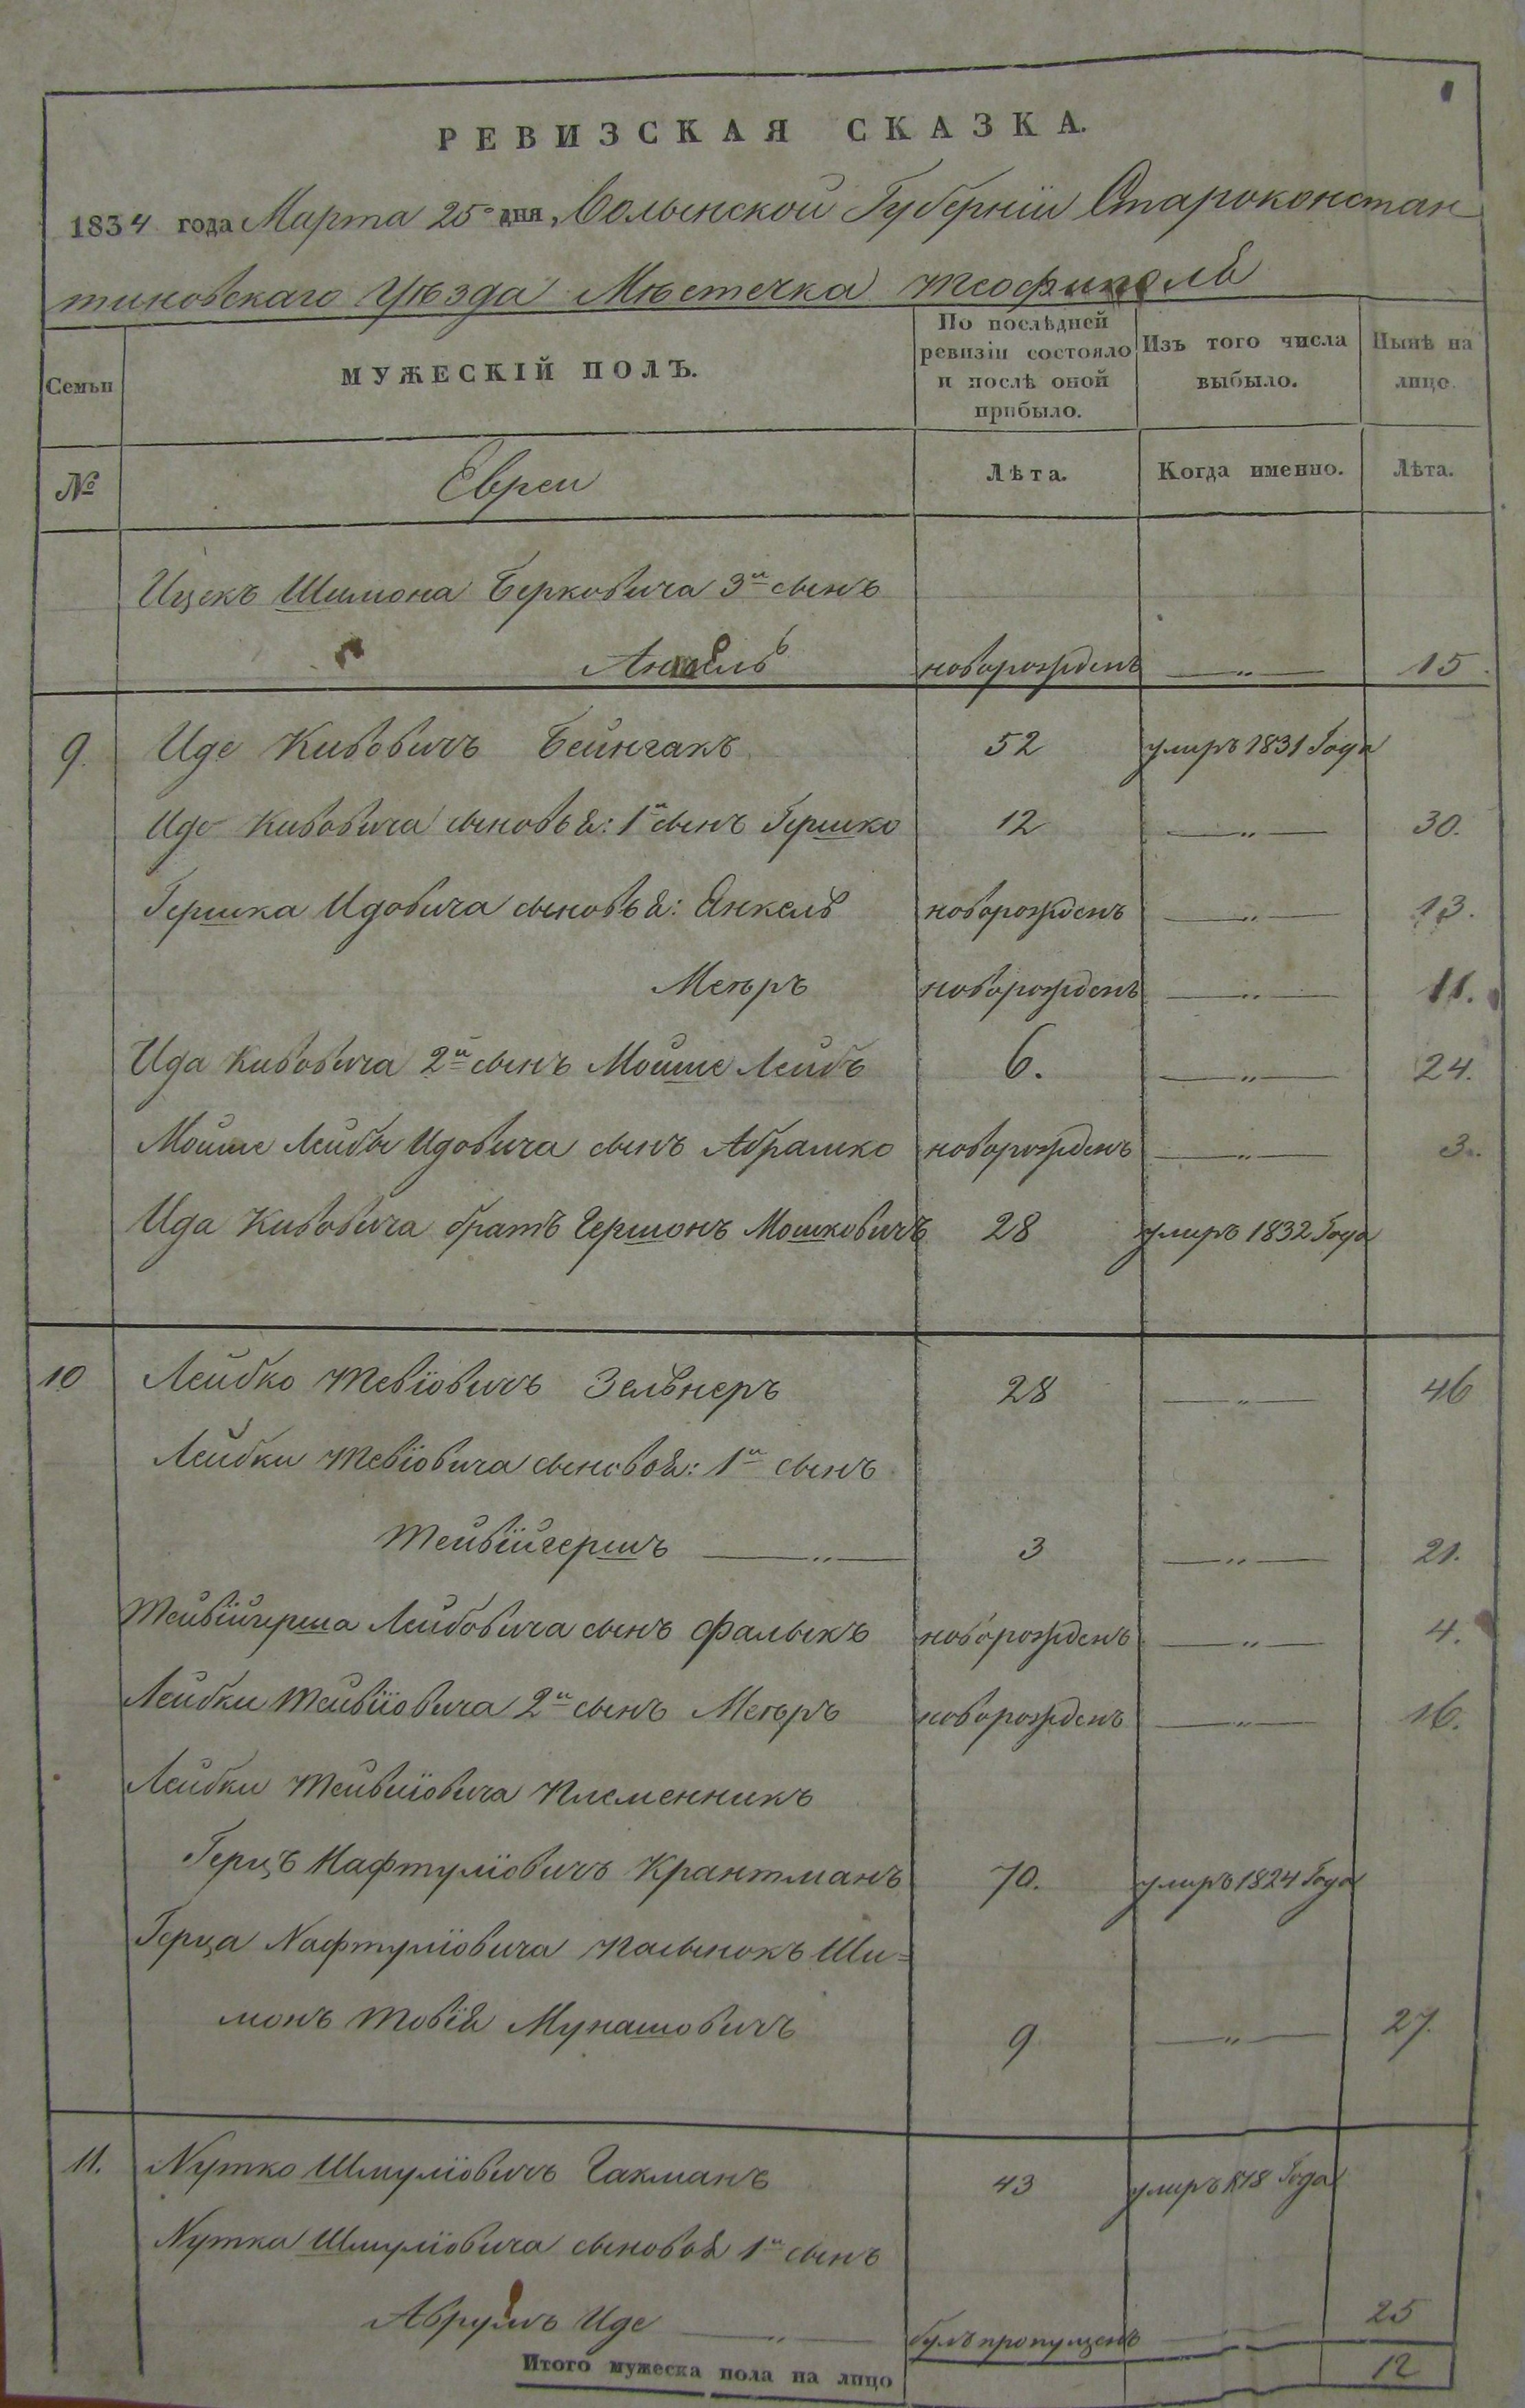 РЕВИЗСКАЯ СКАЗКА.
1834 года Марта 25 дня, Волынской Губерніи Староконстан
тиновскаго Уѣзда Мѣстечка Теофиполь
Семьи
МУЖЕСКІЙ ПОЛЪ.
По послѣдней ревизіи состояло и послѣ оной прибыло.
Изъ того числа выбыло.
Нынѣ на лицо.
№ Евреи Лѣта. Когда именно. Лѣта.
Ицекъ Шимона Берковича 3й сынъ
новорожденъ —„— 15.
9. Иде Кивовичъ Бейнгакъ 52 умиръ 1831 Года
Иде Кивовича сыновья: 1й сынъ Гершко 12 —„— 30.
Гершка Идовича сыновья: Янкель новорожденъ —„— 13.
Меѣръ новорожденъ —„— 11.
Ида Кивовича 2й сынъ Мойше Лейбъ 6. —„— 24.
Мойше Лейбы Идовича сынъ Абрашко новорожденъ —„— 3.
Ида Кивовича братъ Гершонъ Мошковичъ 28 умиръ 1832 Года
10 Лейбко Тевіовичъ Зельнеръ 28 —„— 46
Лейбки Тевіовича сыновья: 1й сынъ
Тейвійгершъ —„— 3 —„— 21.
Тейвійгерша Лейбовича сынъ Фалыкъ новорожденъ —„— 4.
Лейбки Тейвіовича 2й сынъ Меѣръ новорожденъ —„— 16.
Лейбки Тейвіовича племенникъ
Герцъ Нафтуліовичъ Крантманъ 70. умиръ 1824 Года
Герца Нафтуліовича пасынокъ Ши=
монъ Товія Мунашовичъ 9 —„— 27.
11. Нутко Шмуліовичъ Гакманъ 43 умиръ 1818 Года
Нутка Шмуліовича сыновья 1й сынъ
Аврумъ Иде —„— булъ пропущенъ —„— 25
Итого мужеска пола на лицо 12